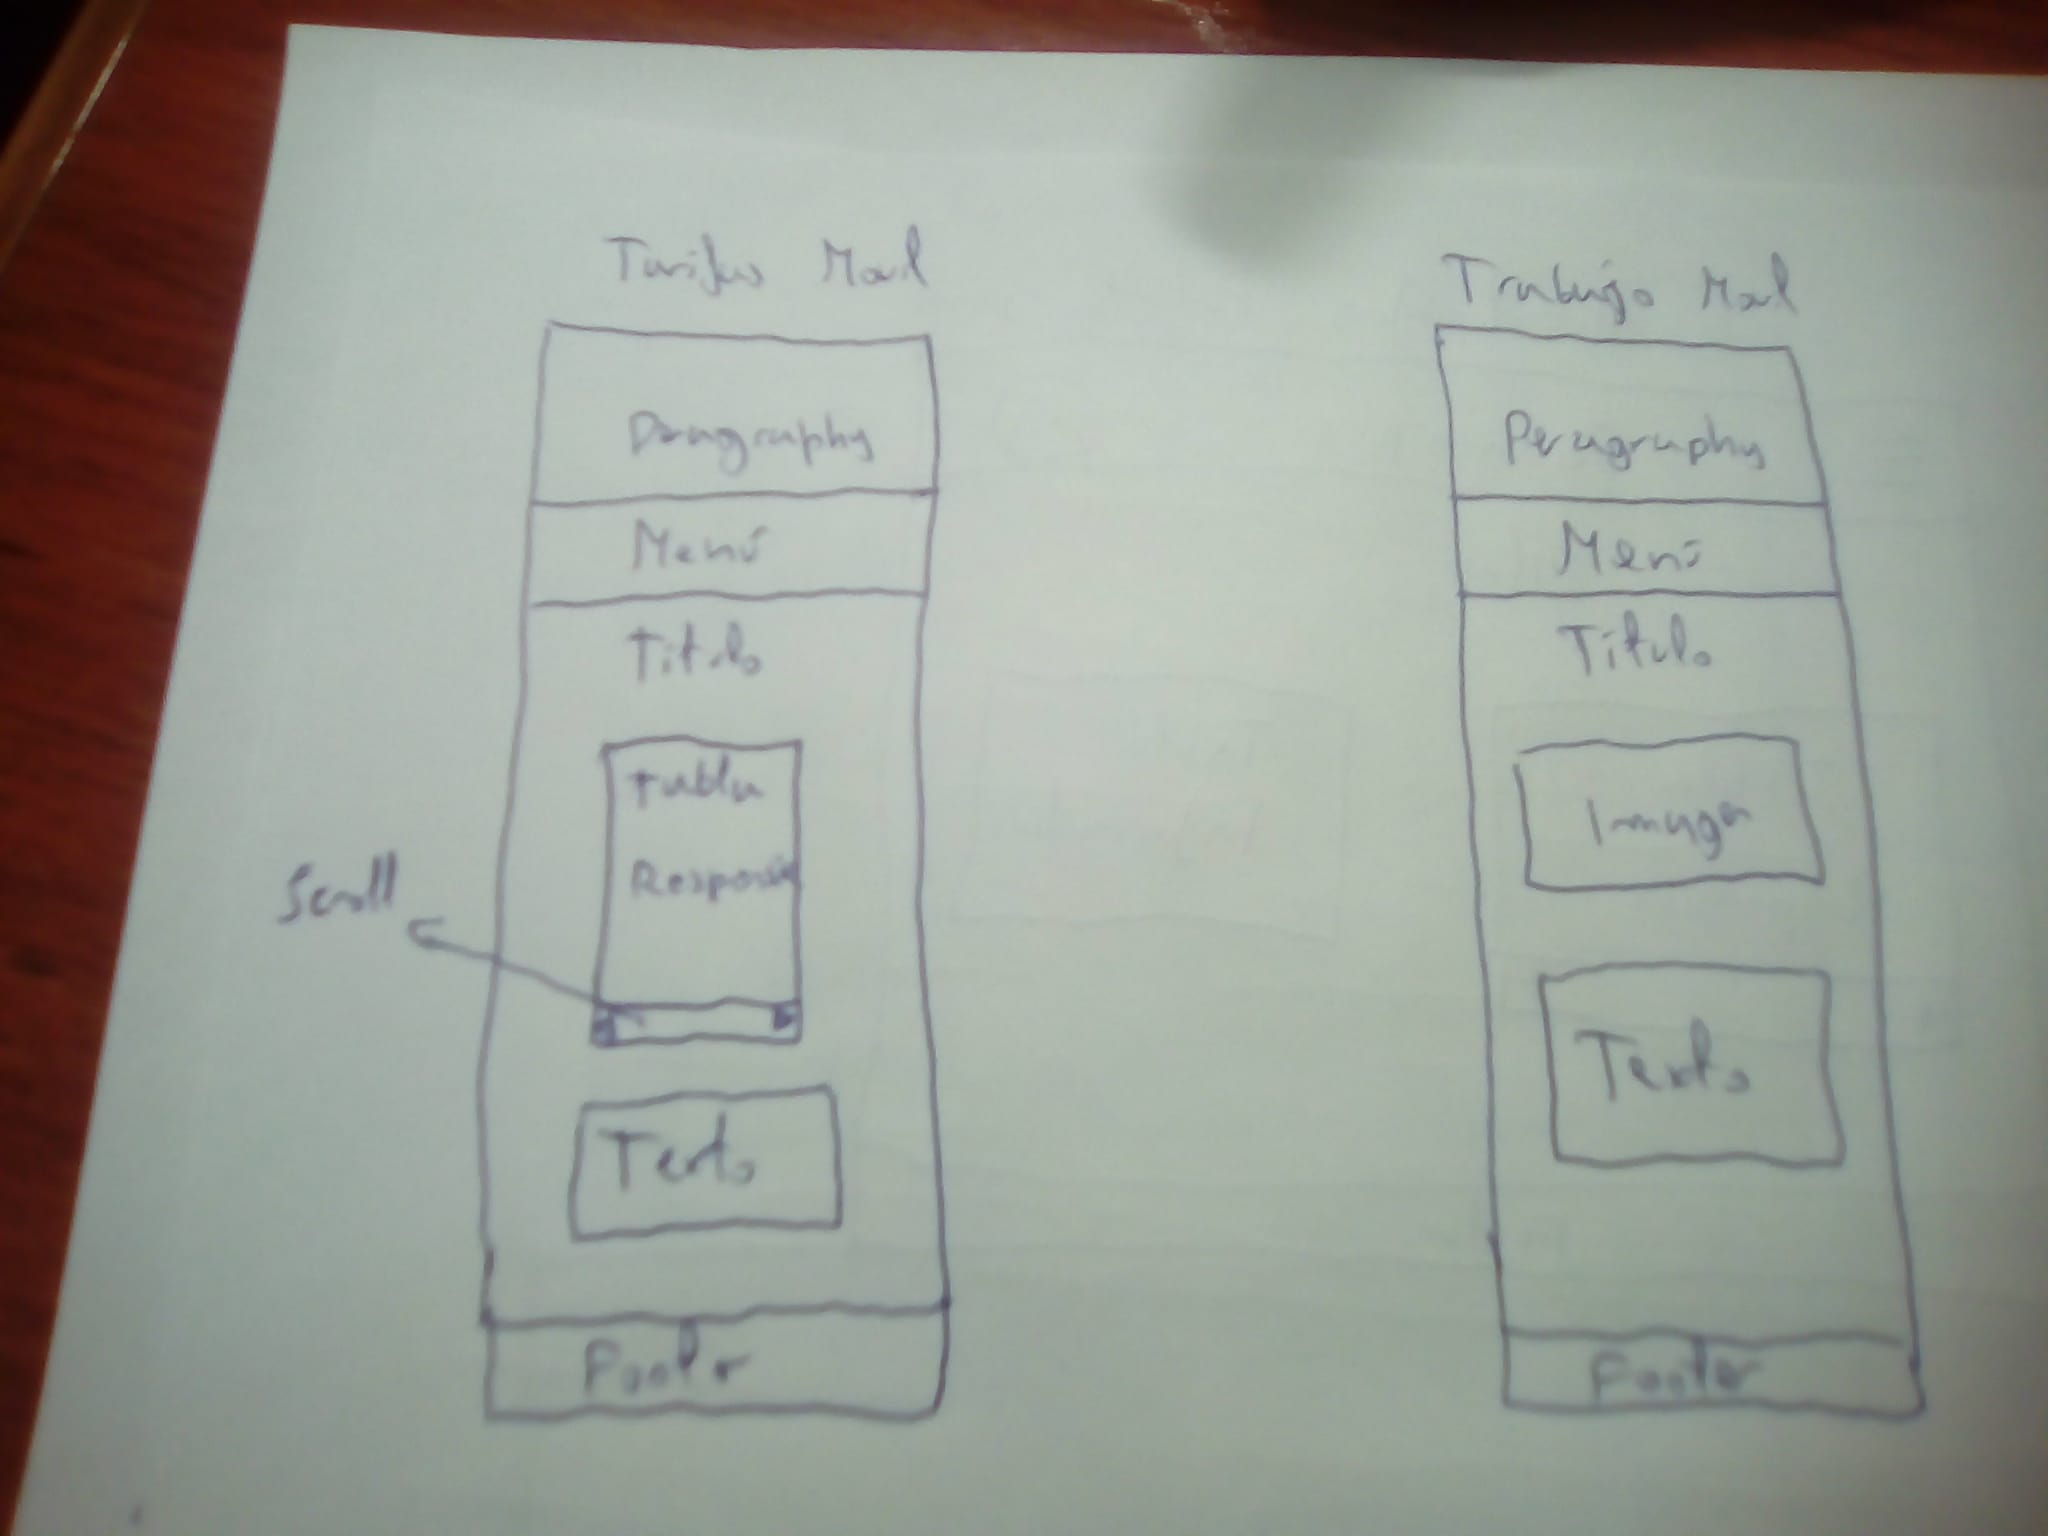 Tarifas Movil
Paragraphy
Menú
Titulo
tabla
Responsi
Scroll
Texto
Footer
Trabajo Movil
Paragraphy
Menú
Título
Imagen
Texto
Footer